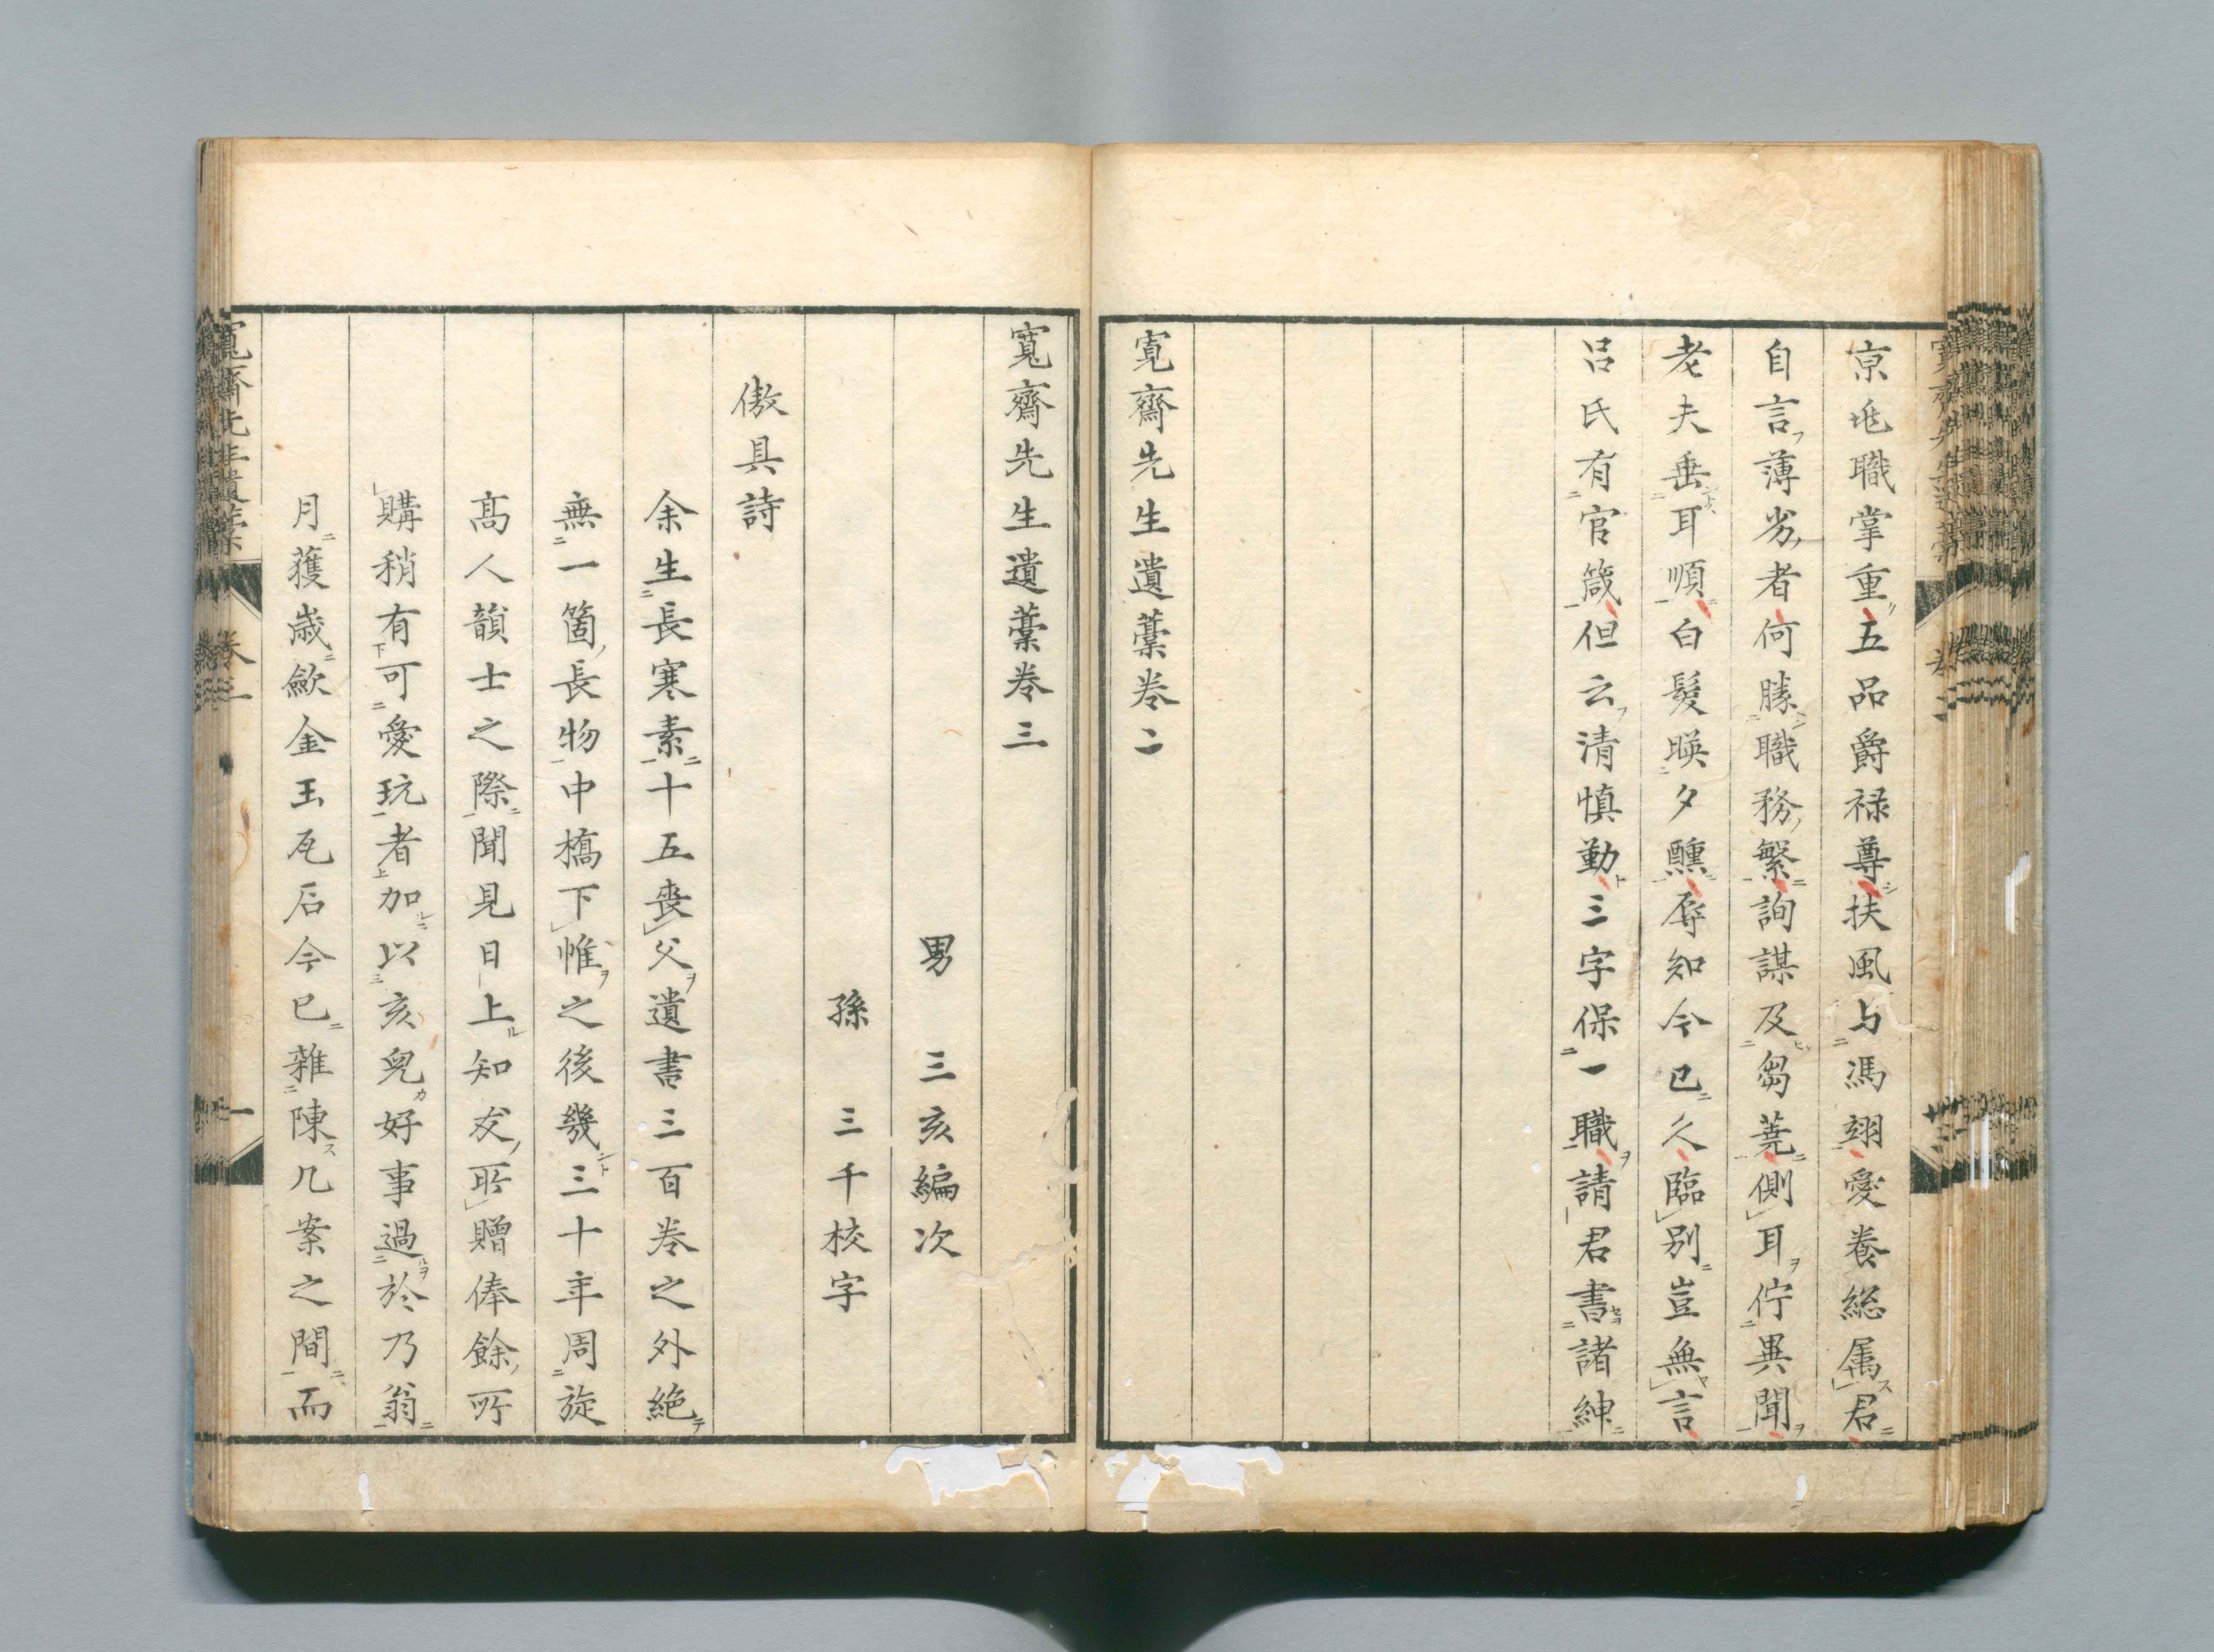 京兆職掌重五品爵禄尊扶風与馮翊愛養総属君
自言薄劣者何勝職務繁詢謀及芻蕘側耳佇異聞
老夫垂耳順白髮暎夕醺辱知今已久臨別豈無言
呂氏有官箴但云清慎勤三字保一職請君書諸紳
寛齋先生遺藁卷二
寬齋先生遺藁卷三
男 三亥編次
孫 三千校字
傲具詩
余生長寒素十五喪父遺書三百卷之外絶
無一箇長物中橋下惟之後幾三十年周旋
髙人韻士之際聞見日上知友所贈俸餘所
購稍有可愛玩者加以亥兒好事過於乃翁
月獲歳歛金玉瓦石今已雜陳几案之間而
寛齋先生遺藁 卷三 一